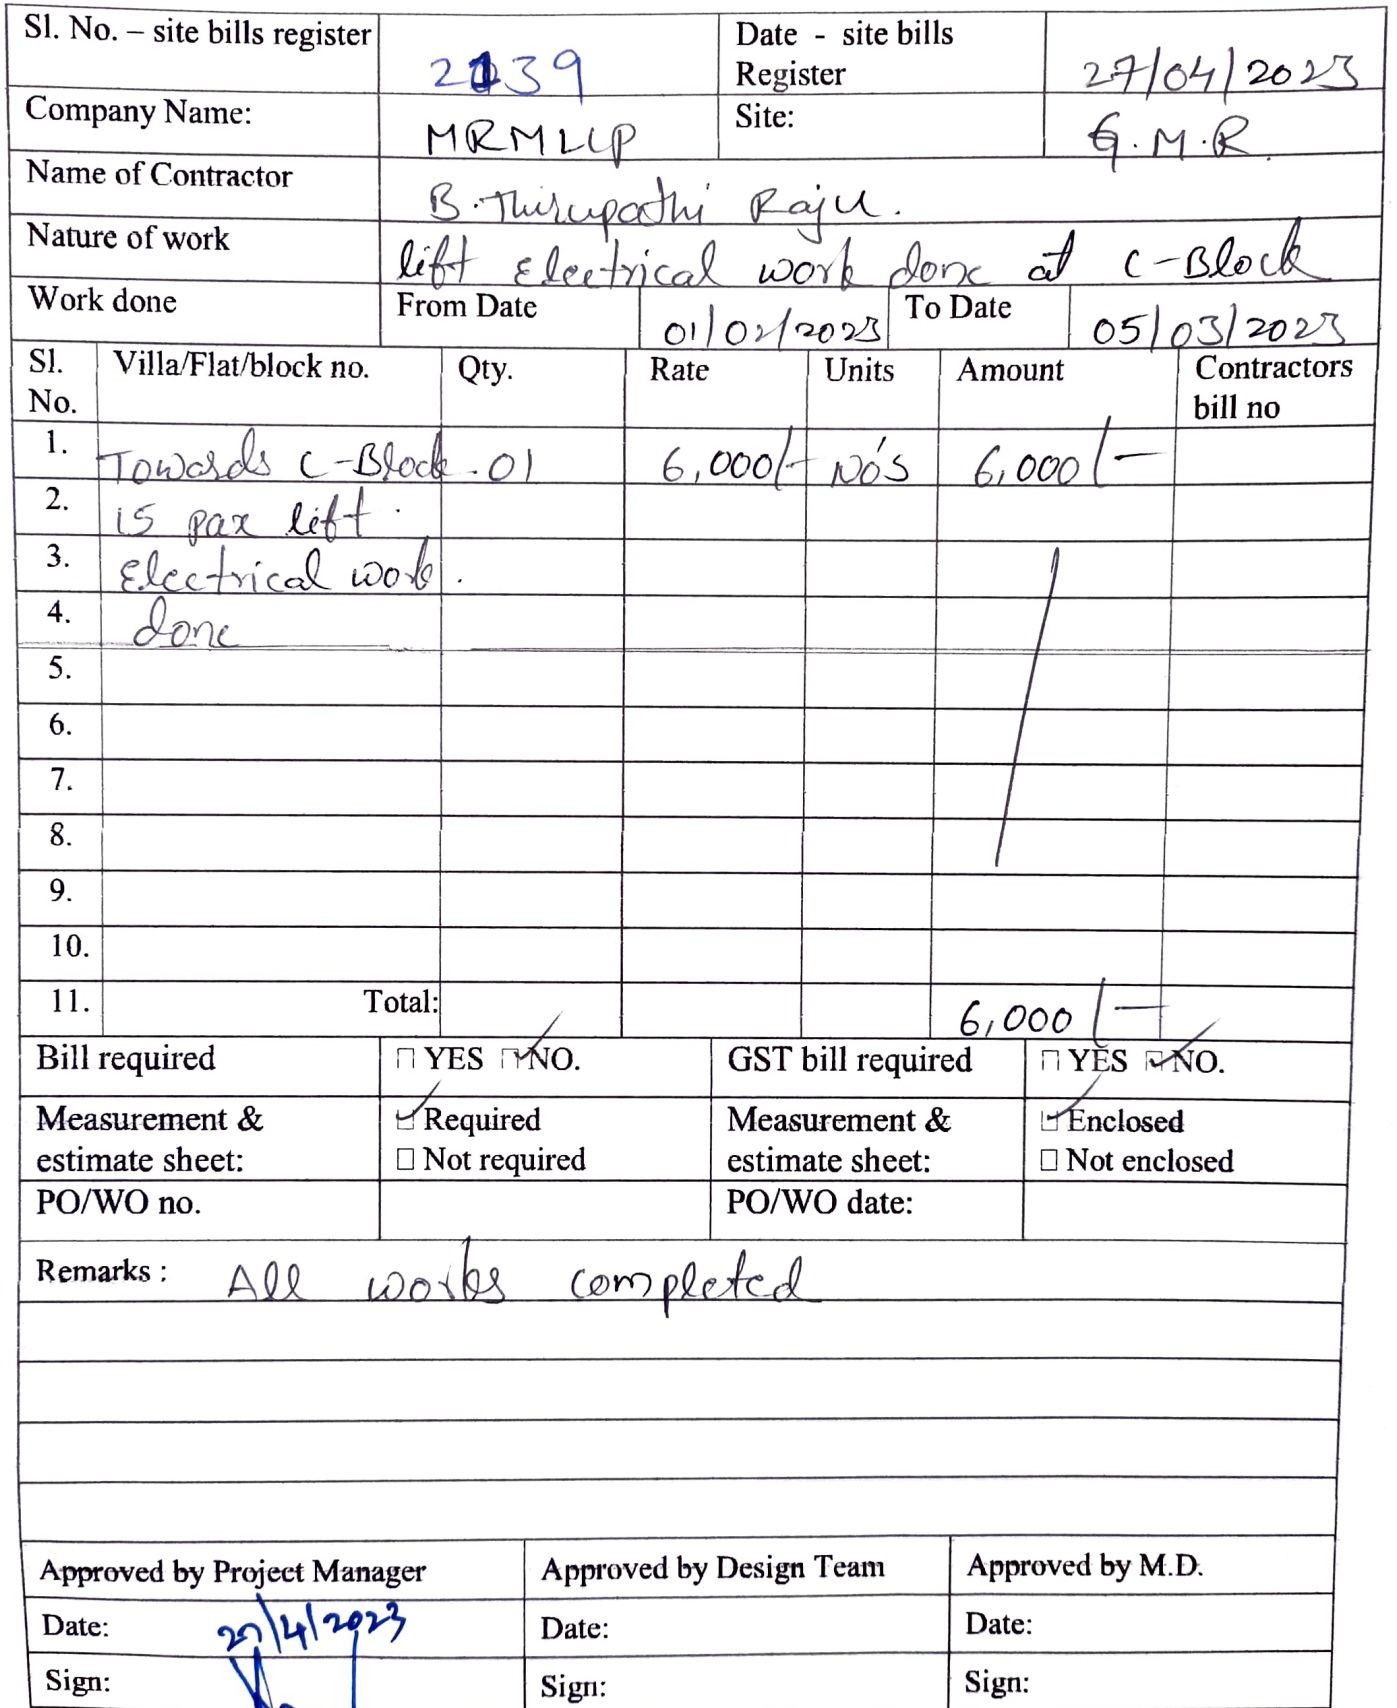 Sl. No. – site bills register 2139 Date - site bills Register 27/04/2023
Company Name: MRMLLP Site: G.M.R
Name of Contractor B.Thirupathi Raju.
Nature of work lift Electrical work done at C-Block
Work done From Date 01/02/2023 To Date 05/03/2023
Sl. No. Villa/Flat/block no. Qty. Rate Units Amount Contractors bill no
1. Towards C-Block 01 6,000/- No's 6,000/-
2. 15 pax lift
3. Electrical work.
4. done
5.
6.
7.
8.
9.
10.
11. Total: 6,000/-
Bill required YES NO. GST bill required YES NO.
Measurement & estimate sheet: Required Not required Measurement & estimate sheet: Enclosed Not enclosed
PO/WO no. PO/WO date:
Remarks : All works completed
Approved by Project Manager Approved by Design Team Approved by M.D.
Date: 27/4/2023 Date: Date:
Sign: Sign: Sign: